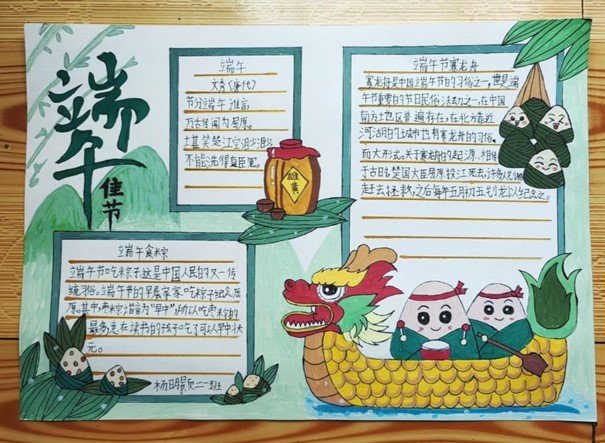 端午
佳节
端午
文秀(唐代)
节分端午谁言,
万古传闻为屈原。
堪笑楚江空渺渺
不能洗得直臣冤。
雄黄
端午节赛龙舟
赛龙舟是中国端午节的习俗之一,也是端
午节重要的节日民俗活动之一,在中国
南方地区普遍存在,在北方靠近
河湖的城市也有赛龙舟的习俗,
而大形式。关于赛龙舟的起源,
于古时楚国大臣屈原投江死去,许多人
赶去拯救,之后每年五月初五划龙以纪念之。
端午食粽
端午节吃粽子,这是中国人民的又一传
统习俗。端午节的早晨家家吃粽子纪念屈
原。其中,枣粽谐音为"早中"所以吃枣粽的
最多,意在读书的孩子吃了可以早中状
元。
二一班